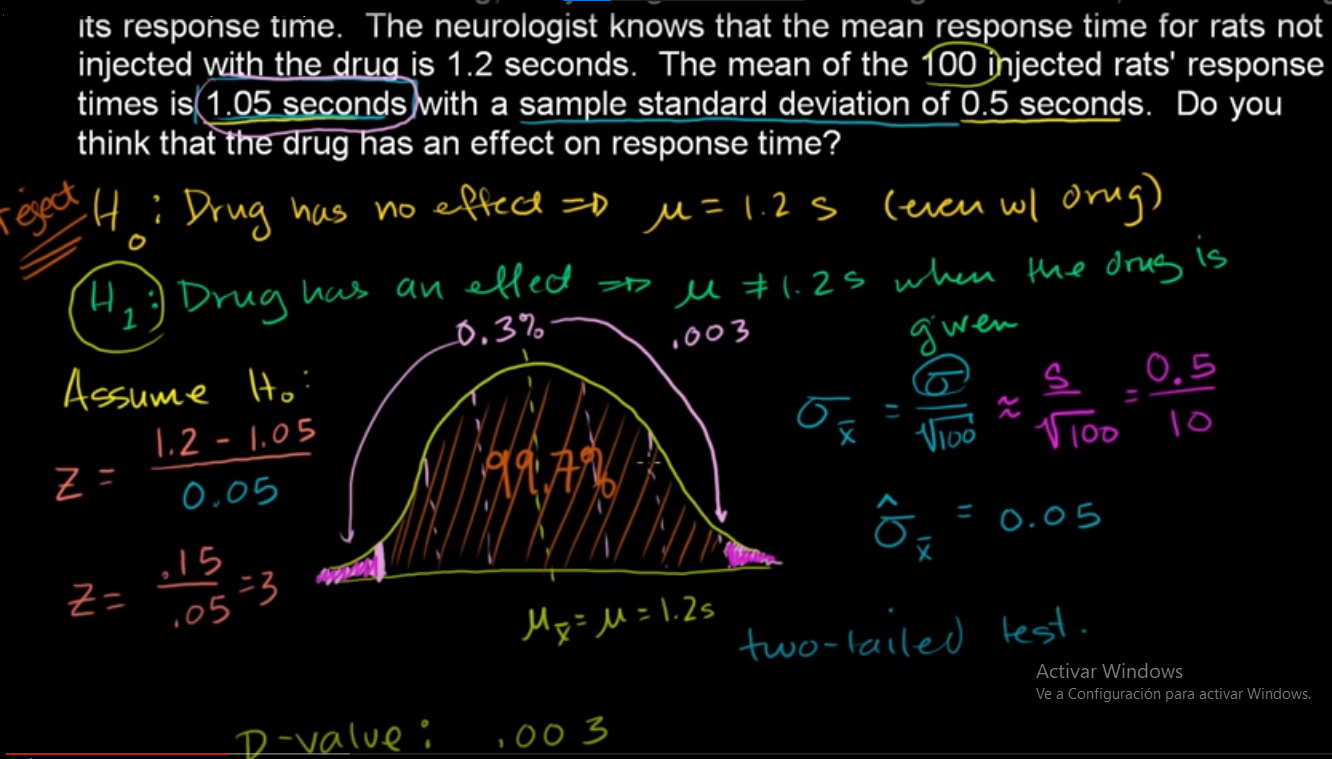 its response time. The neurologist knows that the mean response time for rats not
injected with the drug is 1.2 seconds. The mean of the 100 injected rats' response
times is 1.05 seconds with a sample standard deviation of 0.5 seconds. Do you
think that the drug has an effect on response time?
reject H₀: Drug has no effect ⇒ μ = 1.2 s (even w/ drug)
H₁: Drug has an effect ⇒ μ ≠ 1.2 s when the drug is
given
0.3% .003
Assume H₀:
σx̄ = σ/√100 ≈ s/√100 = 0.5/10
z = (1.2 - 1.05)/0.05
99.7%
σ̂x̄ = 0.05
z = .15/.05 = 3
μx̄ = μ = 1.2s
two-tailed test.
Activar Windows
Ve a Configuración para activar Windows.
P-value: .003